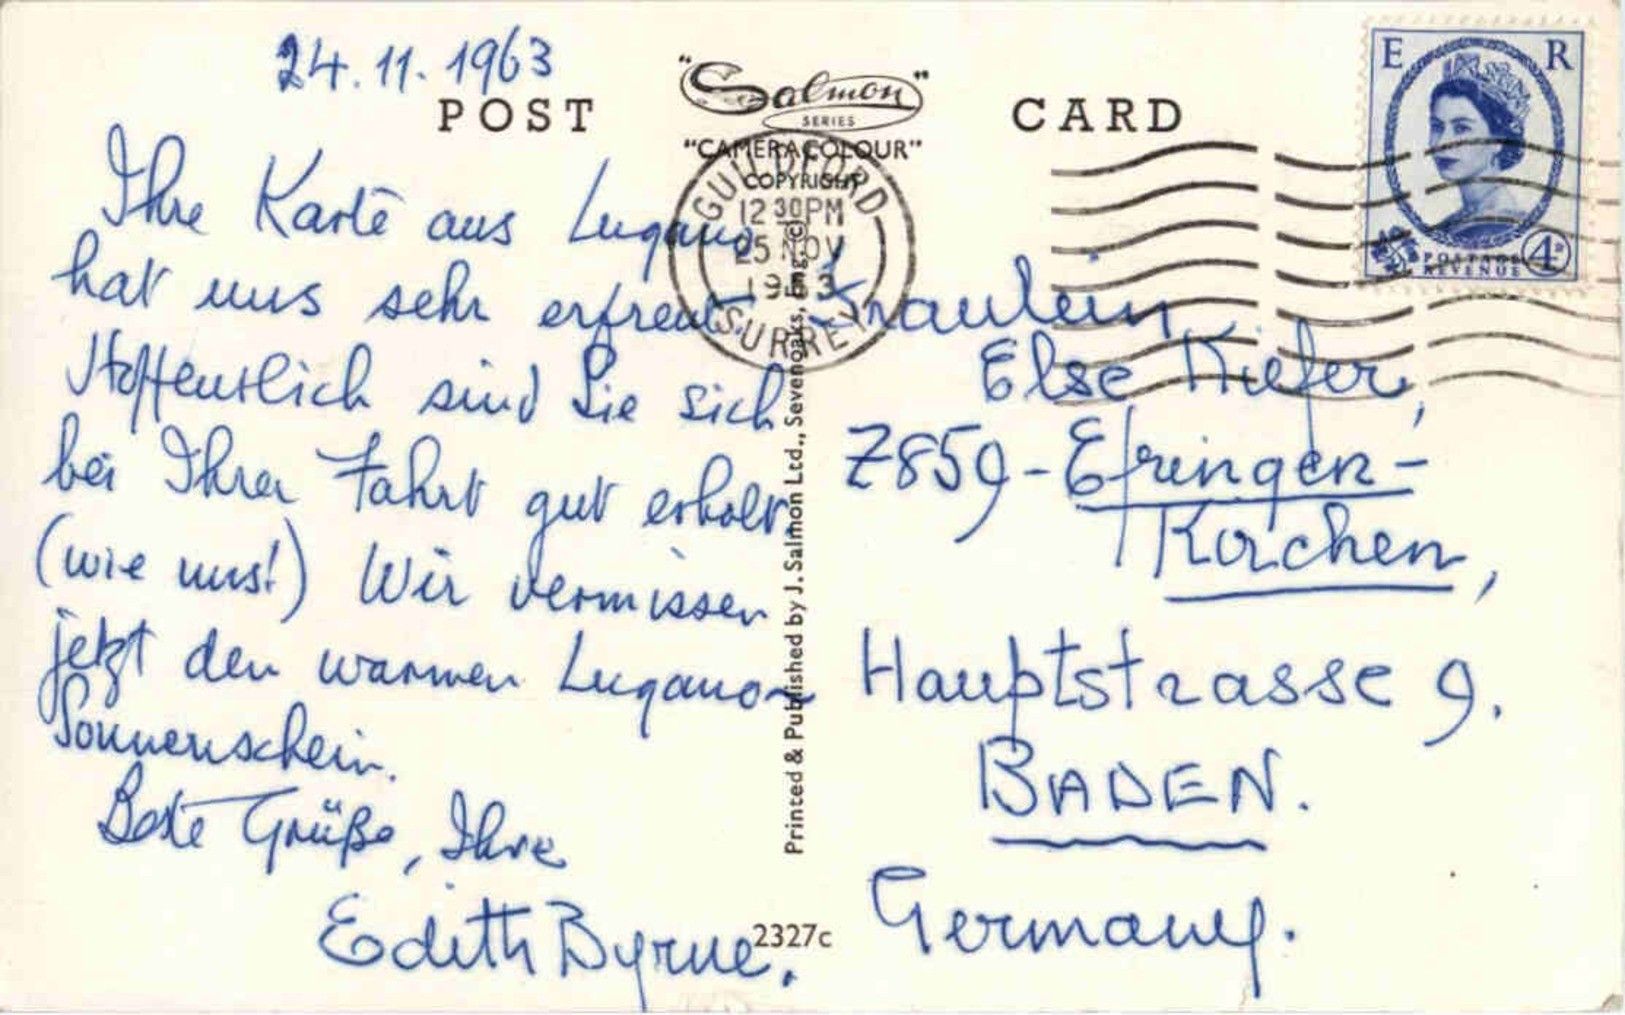 24.11.1963
POST
"Salmon"
SERIES
"CAMERACOLOUR"
COPYRIGHT
CARD
E R
POSTAGE
REVENUE
4D
GUILDFORD
12 30 PM
25 NOV
1963
SURREY
Ihre Karte aus Lugano
hat uns sehr erfreut.
Hoffentlich sind Sie sich
bei Ihrer Fahrt gut erholt.
(wie uns!) Wir vermissen
jetzt den warmen Lugano-
Sonnenschein.
Beste Grüße, Ihre
Edith Byrne.
Printed & Published by J. Salmon Ltd., Sevenoaks, Eng. ©
2327c
Fraulein
Else Kiefer,
7859-Efringen-
Kirchen,
Hauptstrasse 9.
BADEN.
Germany.